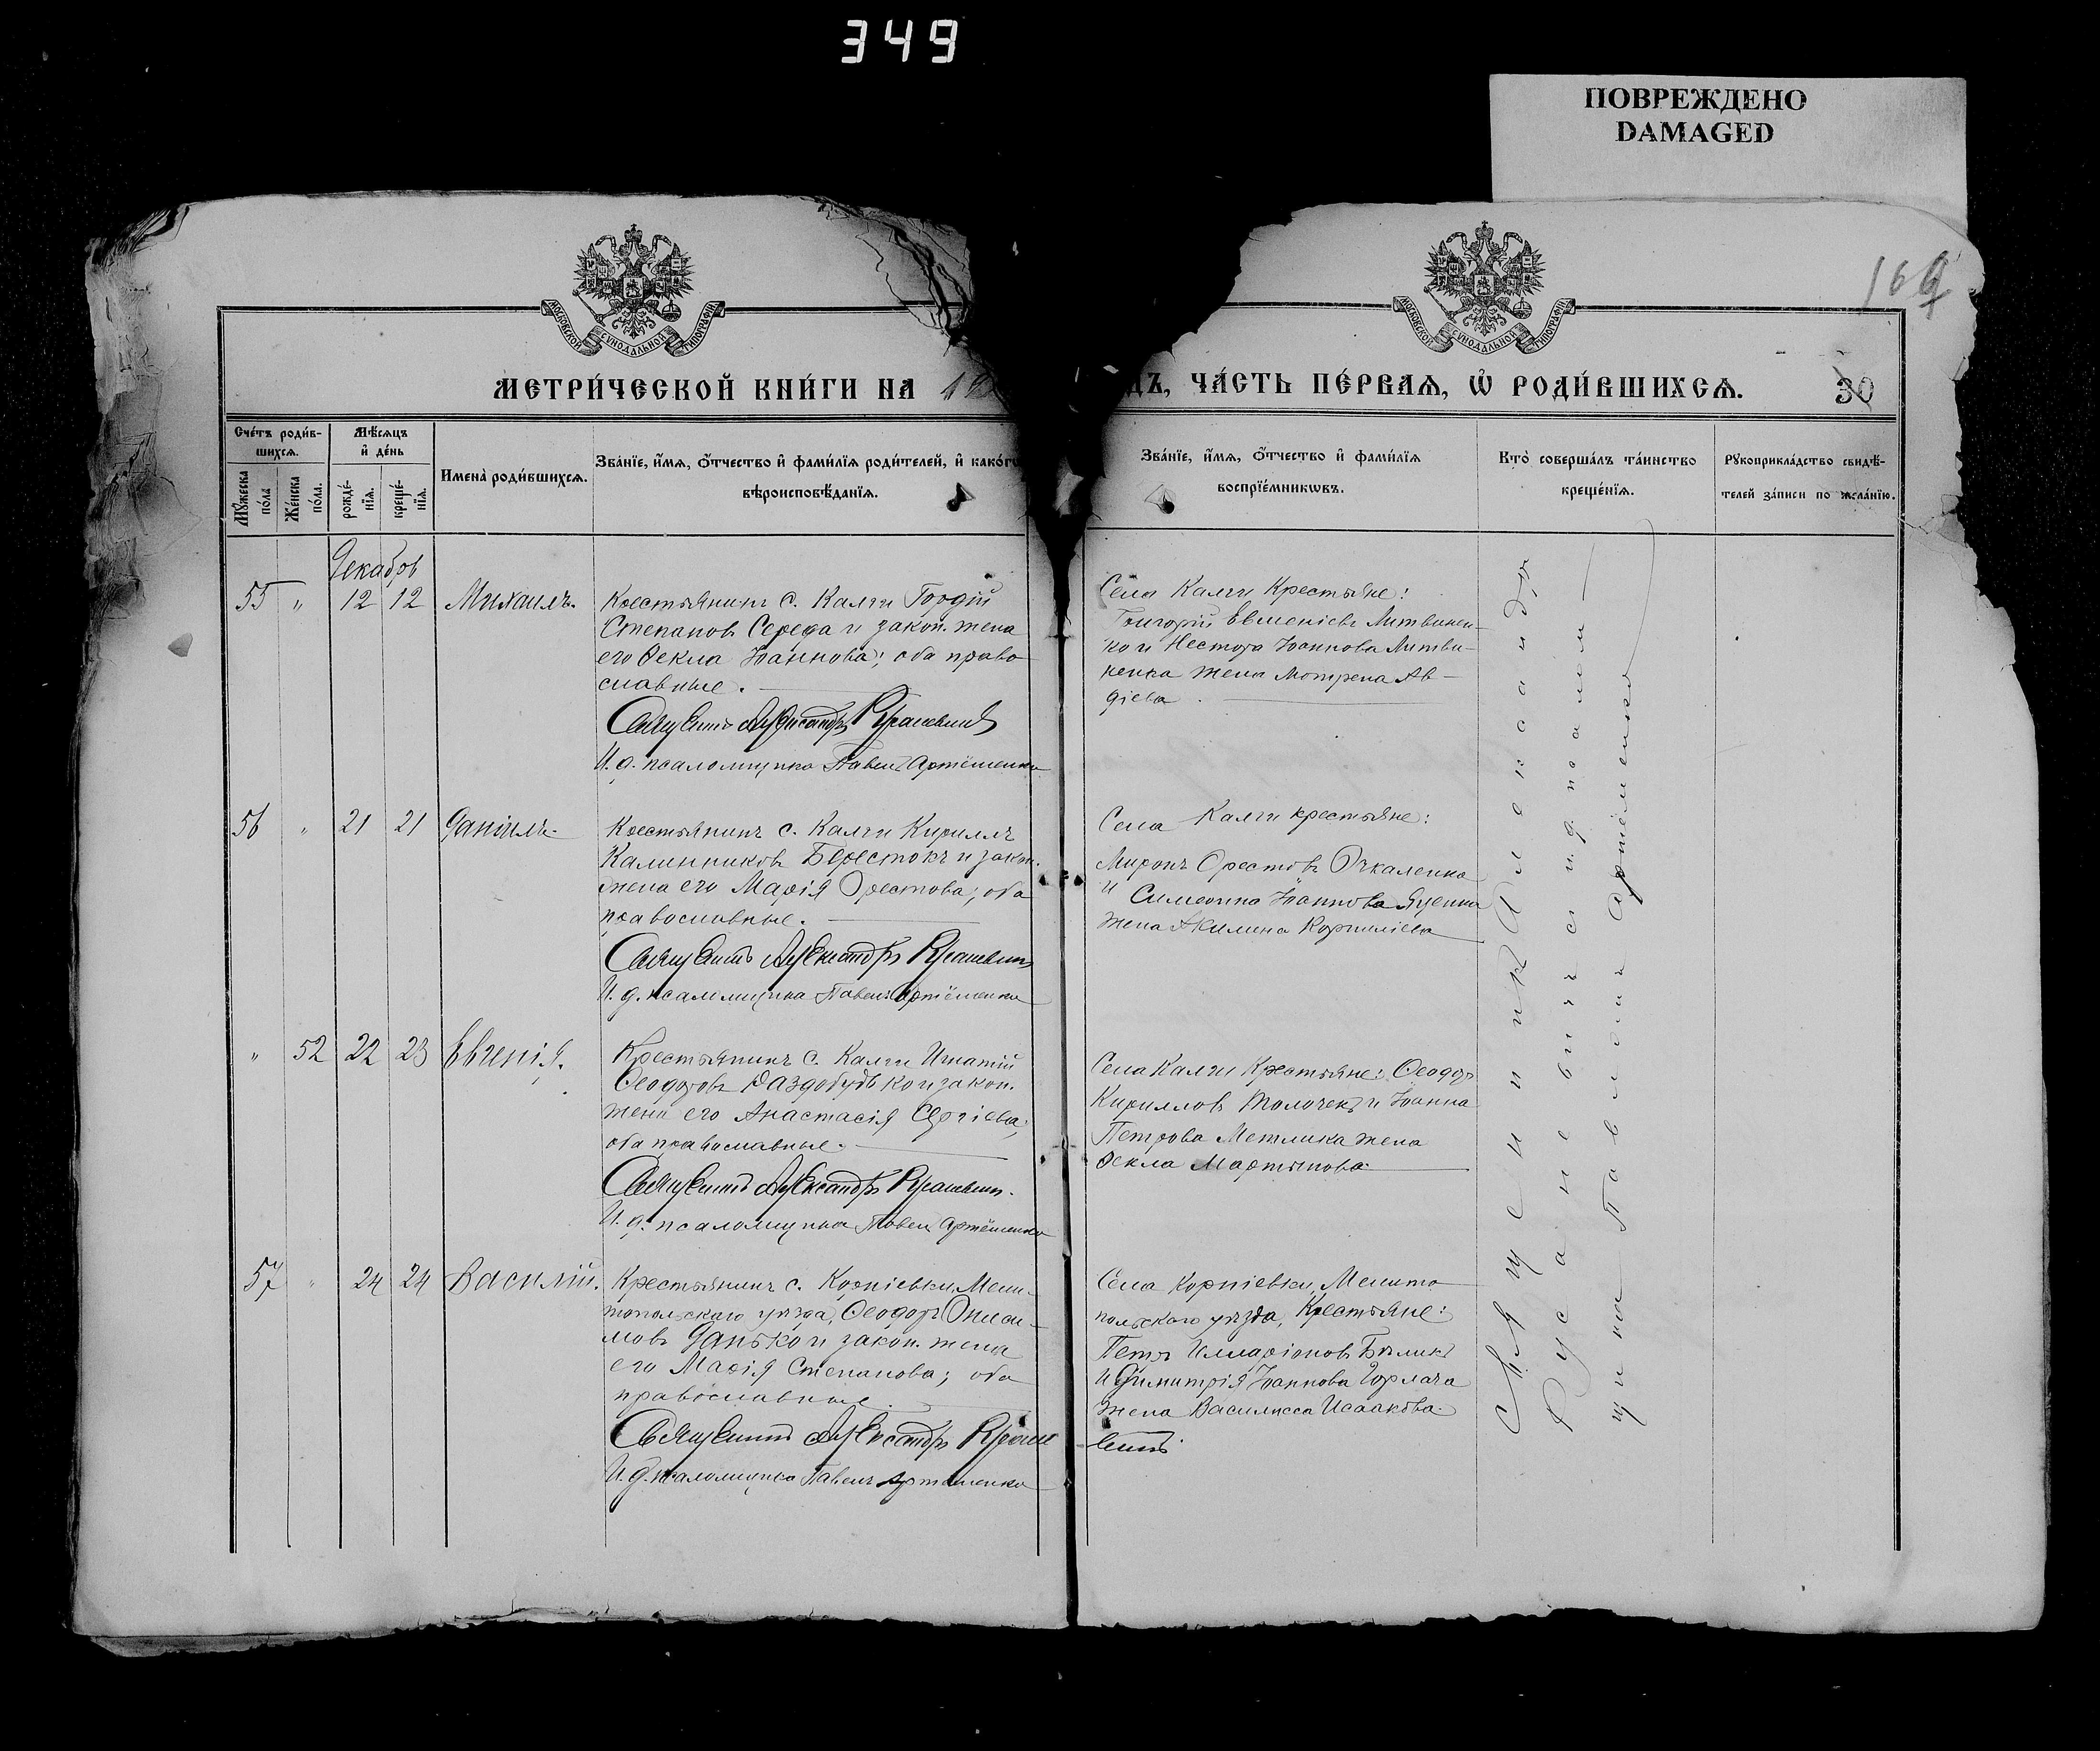 349
ПОВРЕЖДЕНО
DAMAGED
МОСКОВСКОЙ СѴНОДАЛЬНОЙ ТИПОГРАФІИ
МОСКОВСКОЙ СѴНОДАЛЬНОЙ ТИПОГРАФІИ
МЕТРИ́ЧЕСКОЙ КНИ́ГИ НА 18
ДЪ, ЧА́СТЬ ПЕ́РВАѦ, Ѡ҆ РОДИ́ВШИХСѦ.
30
Сче́тъ роди́в-
шихсѧ.
Мꙋ́жеска по́ла
Же́нска по́ла.
Мѣ́сѧцъ
и҆ де́нь
рожде́-
нїѧ.
креще́-
нїѧ.
Имена̀ роди́вшихсѧ.
Зва́нїе, и҆́мѧ, ѻ҆́тчество и҆ фами́лїѧ роди́телей, и҆ како́гѡ
вѣроисповѣ́данїѧ.
Зва́нїе, и҆́мѧ, ѻ҆́тчество и҆ фами́лїѧ
воспрїе́мникѡвъ.
Кто̀ соверша́лъ та́инство
креще́нїѧ.
Рꙋкоприкла́дство свидѣ́-
телей за́писи по жела́нїю.
Декабрь
55 " 12 12 Михаилъ.
Крестьянинъ с. Калги Гордій
Степановъ Середа и закон. жена
его Ѳекла Іоаннова; оба право-
славные.
Священникъ Александръ
И. д. псаломщика Павелъ Артёменко
Села Калги Крестьяне:
Григорій Евменіевъ Литвинен-
ко и Нестора Іоаннова Литви-
ненка жена Мотрена Ав-
діева.
56 " 21 21 Даніилъ.
Крестьянинъ с. Калги Кириллъ
Калинниковъ Берестокъ и закон.
жена его Марія Орестова; оба
православные.
Священникъ Александръ
И. д. псаломщика Павелъ Артёменко
Села Калги крестьяне:
Миронъ Орестовъ
и Симеона Іоаннова Яценка
жена Акилина Корниліева
" 52 22 23 Евгенія.
Крестьянинъ с. Калги Игнатій
Ѳеодоровъ Раздобудько и закон.
жена его Анастасія Сергіева;
оба православные.
Священникъ Александръ
И. д. псаломщика Павелъ Артёменко
Села Калги Крестьяне: Ѳеодоръ
Кирилловъ Толочекъ и Іоанна
Петрова Метлика жена
Ѳекла Мартынова.
57 " 24 24 Василій.
Крестьянинъ с. Корніевки, Мели-
топольскаго уѣзда, Ѳеодоръ Ониси-
мовъ Данько и закон. жена
его Марія Степанова; оба
православные.
Священникъ Александръ
И. д. псаломщика Павелъ Артёменко
Села Корніевки, Мелито-
польскаго уѣзда, Крестьяне:
Петръ Илларіоновъ Бѣликъ
и Димитрія Іоаннова Горлача
жена Василисса Исаакова.
Священникъ Александръ
с и. д. псалом-
щика Павломъ Артёменко